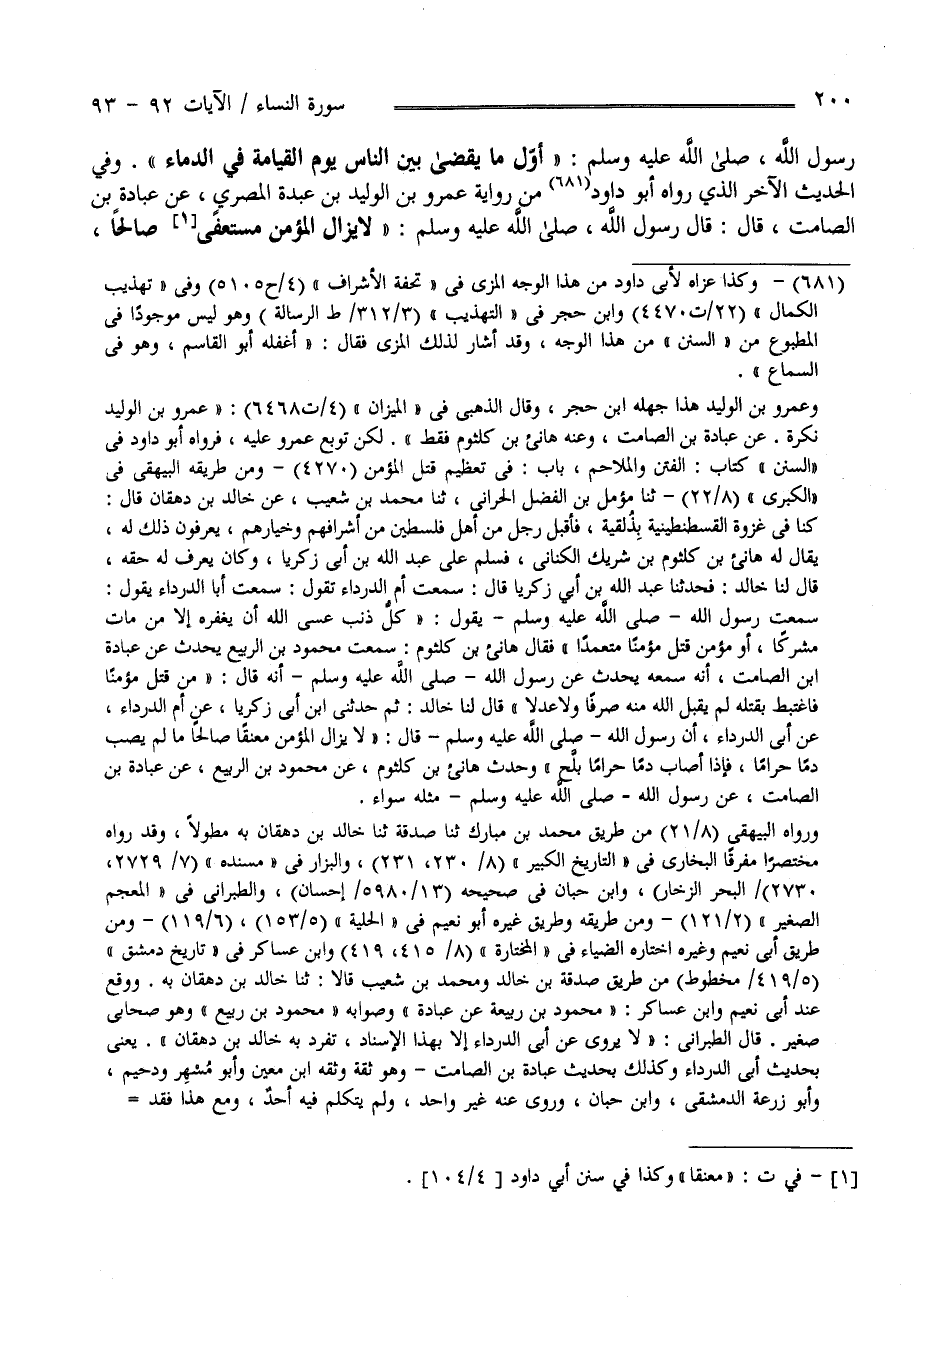 ٢٠٠ سورة النساء / الآيات ٩٢ - ٩٣
رسول اللَّه ، صلىٰ اللَّه عليه وسلم : « أوّل ما يقضىٰ بين الناس يوم القيامة في الدماء » . وفي
الحديث الآخر الذي رواه أبو داود(٦٨١) من رواية عمرو بن الوليد بن عبدة المصري ، عن عبادة بن
الصامت ، قال : قال رسول اللَّه ، صلىٰ اللَّه عليه وسلم : « لايزال المؤمن مستعفًى[١] صالحًا ،
(٦٨١) - وكذا عزاه لأبى داود من هذا الوجه المزى فى « تحفة الأشراف » (٤/ح٥١٠٥) وفى « تهذيب
الكمال » (٢٢/ت٤٤٧٠) وابن حجر فى « التهذيب » (٣١٢/٣/ ط الرسالة ) وهو ليس موجودًا فى
المطبوع من « السنن » من هذا الوجه ، وقد أشار لذلك المزى فقال : « أغفله أبو القاسم ، وهو فى
السماع » .
وعمرو بن الوليد هذا جهله ابن حجر ، وقال الذهبى فى « الميزان » (٤/ت٦٤٦٨) : « عمرو بن الوليد
نكرة . عن عبادة بن الصامت ، وعنه هانئ بن كلثوم فقط » . لكن توبع عمرو عليه ، فرواه أبو داود فى
«السنن » كتاب : الفتن والملاحم ، باب : فى تعظيم قتل المؤمن (٤٢٧٠) - ومن طريقه البيهقى فى
«الكبرى » (٢٢/٨) - ثنا مؤمل بن الفضل الحرانى ، ثنا محمد بن شعيب ، عن خالد بن دهقان قال :
كنا فى غزوة القسطنطينية بِذُلقية ، فأقبل رجل من أهل فلسطين من أشرافهم وخيارهم ، يعرفون ذلك له ،
يقال له هانئ بن كلثوم بن شريك الكنانى ، فسلم على عبد الله بن أبى زكريا ، وكان يعرف له حقه ،
قال لنا خالد : فحدثنا عبد الله بن أبي زكريا قال : سمعت أم الدرداء تقول : سمعت أبا الدرداء يقول :
سمعت رسول الله - صلي اللَّه عليه وسلم - يقول : « كلُّ ذنب عسى الله أن يغفره إلا من مات
مشركًا ، أو مؤمن قتل مؤمنًا متعمدًا » فقال هانئ بن كلثوم : سمعت محمود بن الربيع يحدث عن عبادة
ابن الصامت ، أنه سمعه يحدث عن رسول الله - صلي اللَّه عليه وسلم - أنه قال : « من قتل مؤمنًا
فاغتبط بقتله لم يقبل الله منه صرفًا ولاعدلا » قال لنا خالد : ثم حدثنى ابن أبى زكريا ، عن أم الدرداء ،
عن أبى الدرداء ، أن رسول الله - صلي اللَّه عليه وسلم - قال : « لا يزال المؤمن معنقًا صالحًا ما لم يصب
دمًا حرامًا ، فإذا أصاب دمًا حرامًا بلَّح » وحدث هانئ بن كلثوم ، عن محمود بن الربيع ، عن عبادة بن
الصامت ، عن رسول الله - صلي اللَّه عليه وسلم - مثله سواء .
ورواه البيهقى (٢١/٨) من طريق محمد بن مبارك ثنا صدقة ثنا خالد بن دهقان به مطولاً ، وقد رواه
مختصرًا مفرقًا البخارى فى « التاريخ الكبير » (٨/ ٢٣٠، ٢٣١) ، والبزار فى « مسنده » (٧/ ٢٧٢٩،
٢٧٣٠)/ البحر الزخار) ، وابن حبان فى صحيحه (٥٩٨٠/١٣/ إحسان) ، والطبرانى فى « المعجم
الصغير » (١٢١/٢) - ومن طريقه وطريق غيره أبو نعيم فى « الحلية » (١٥٣/٥) ، (١١٩/٦) - ومن
طريق أبى نعيم وغيره اختاره الضياء فى « المختارة » (٨/ ٤١٥، ٤١٩) وابن عساكر فى « تاريخ دمشق »
(٤١٩/٥/ مخطوط) من طريق صدقة بن خالد ومحمد بن شعيب قالا : ثنا خالد بن دهقان به . ووقع
عند أبى نعيم وابن عساكر : « محمود بن ربيعة عن عبادة » وصوابه « محمود بن ربيع » وهو صحابى
صغير . قال الطبرانى : « لا يروى عن أبى الدرداء إلا بهذا الإسناد ، تفرد به خالد بن دهقان » . يعنى
بحديث أبى الدرداء وكذلك بحديث عبادة بن الصامت - وهو ثقة وثقه ابن معين وأبو مُسْهِر ودحيم ،
وأبو زرعة الدمشقى ، وابن حبان ، وروى عنه غير واحد ، ولم يتكلم فيه أحدٌ ، ومع هذا فقد =
[١] - في ت : «معنقا» وكذا في سنن أبي داود [ ١٠٤/٤] .